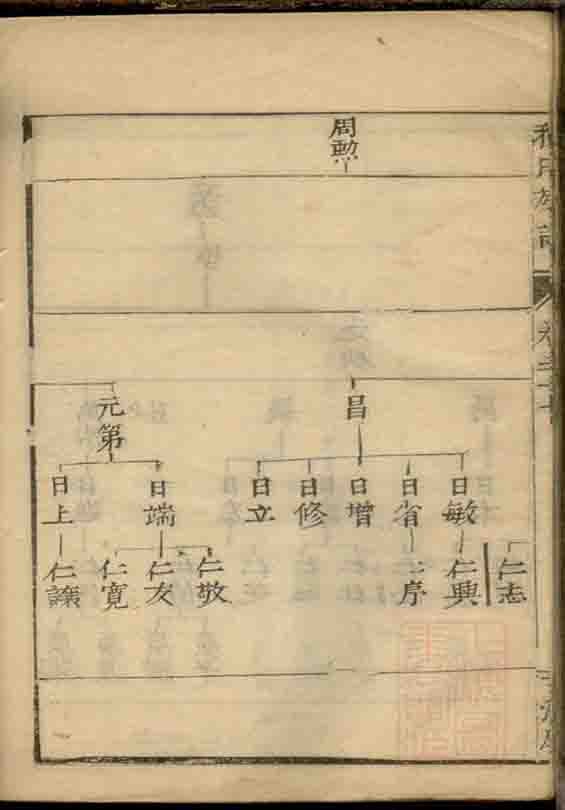 周勲
昌
元第
日敏
日省
日增
日修
日立
日端
日上
仁志
仁興
仁序
仁敬
仁友
仁寬
仁讓